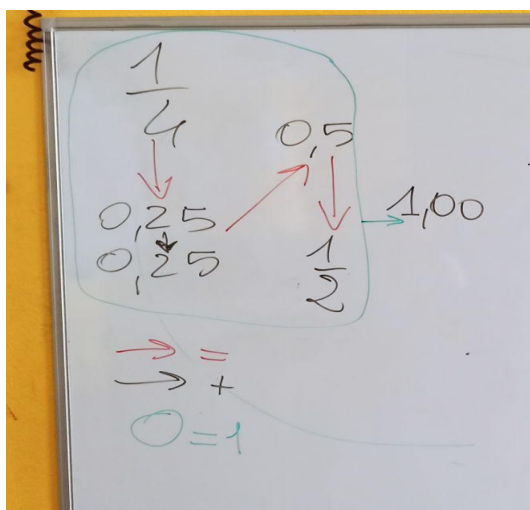 1
4
0,25
0,25
0,5
1
2
1,00
=
+
0=1